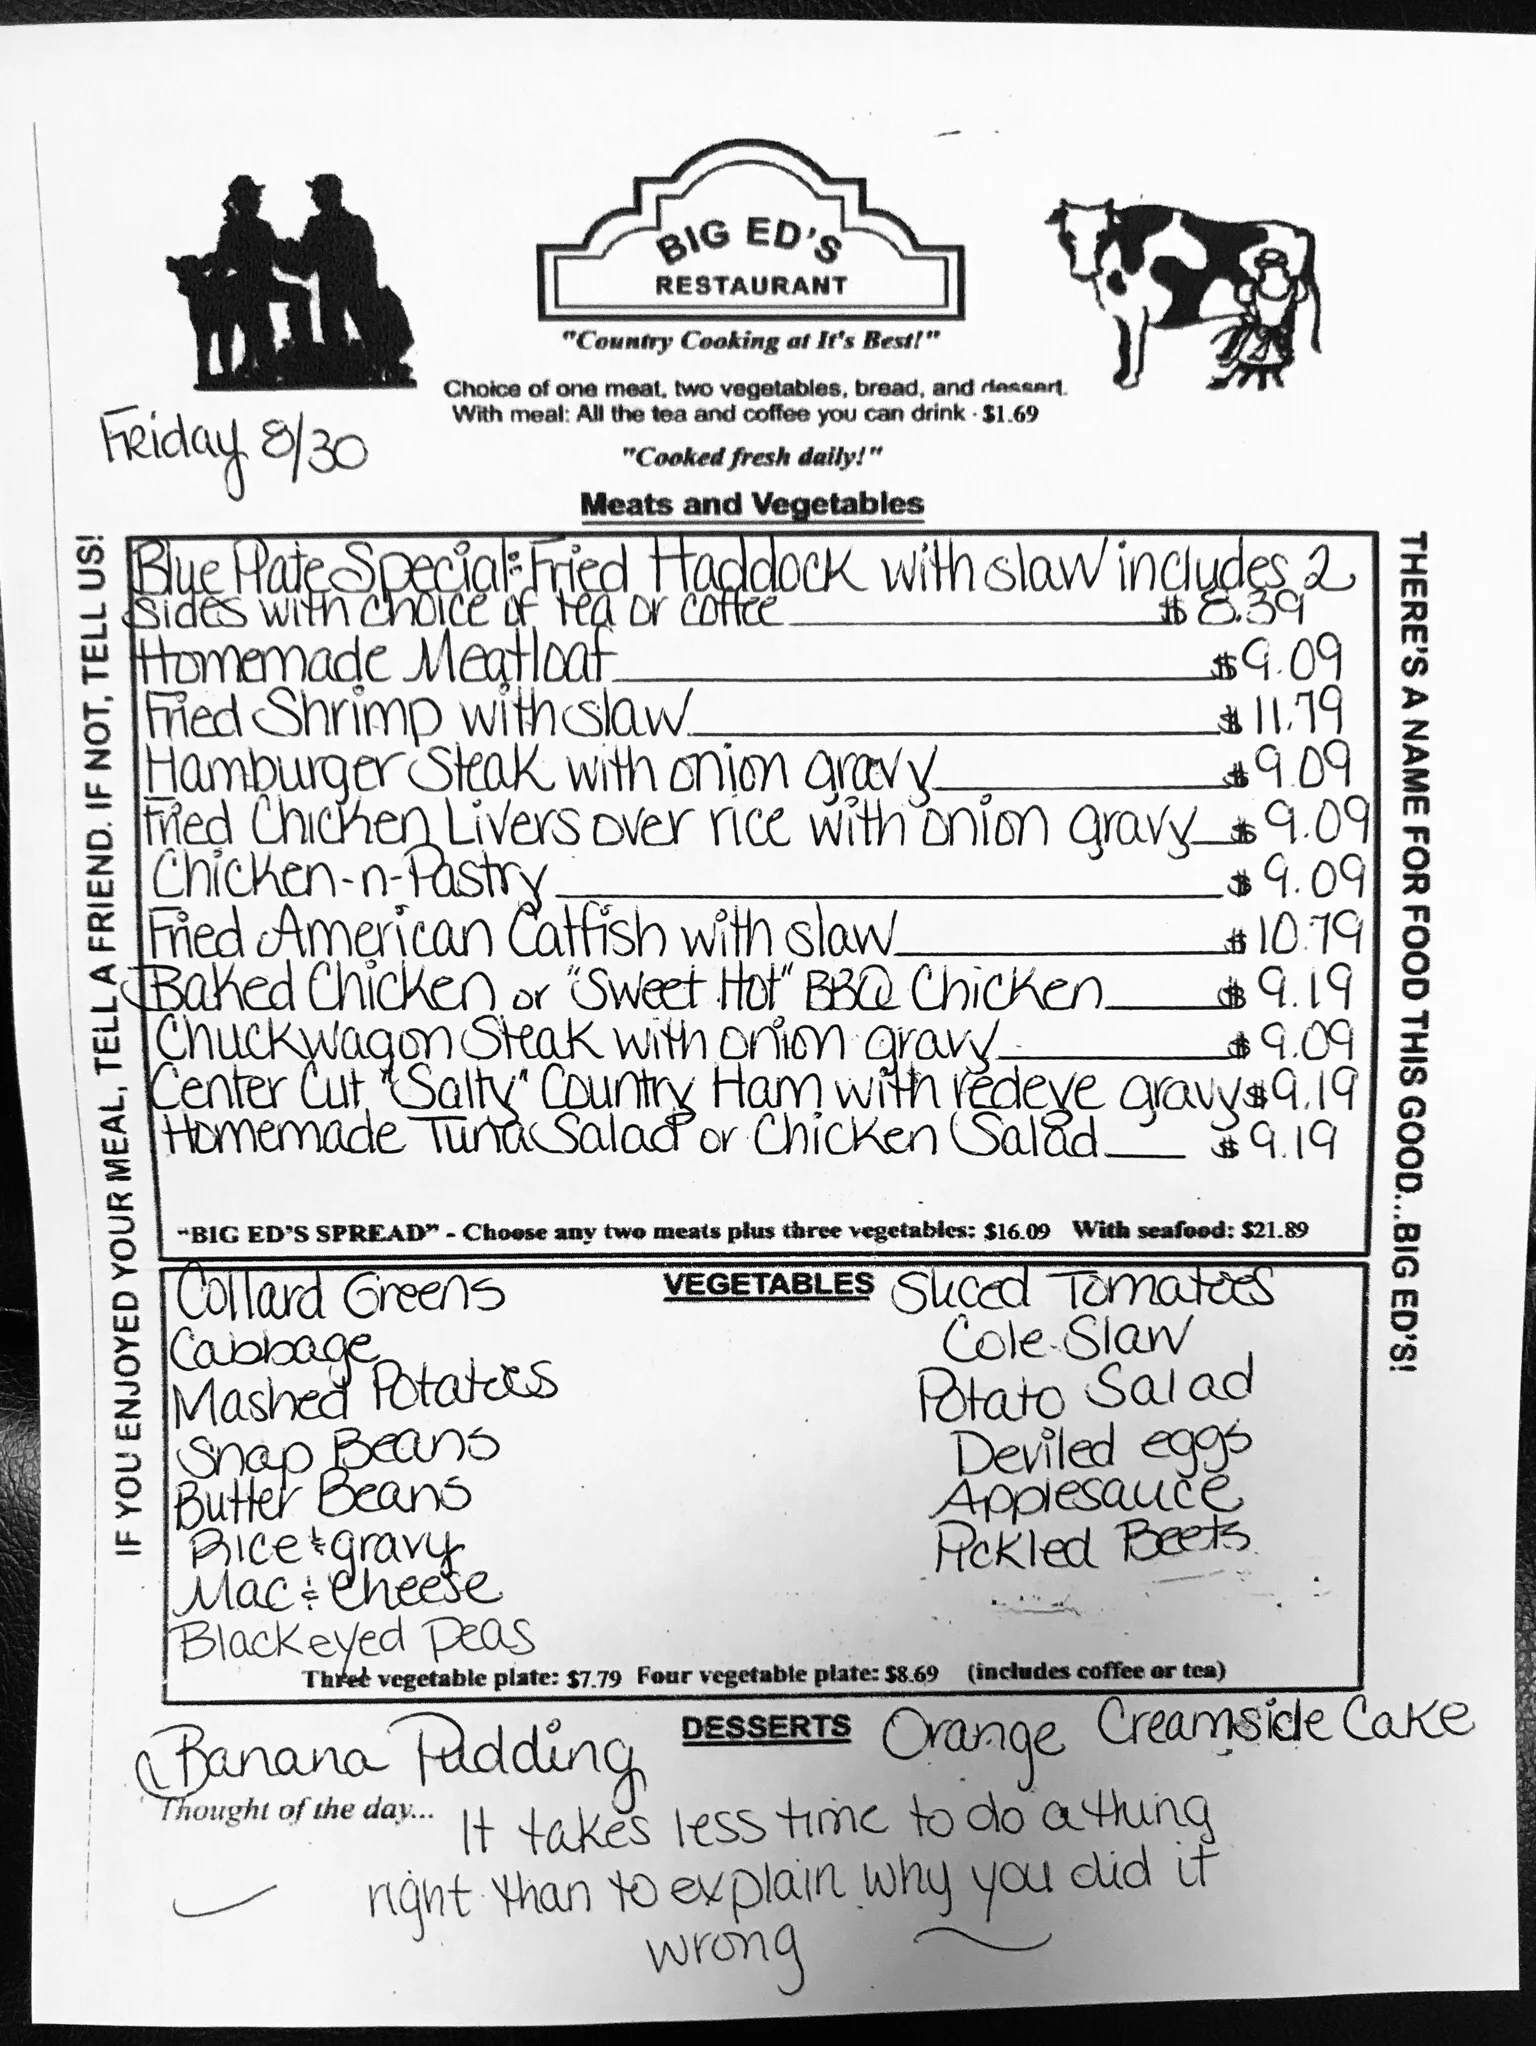 BIG ED'S
RESTAURANT
"Country Cooking at It's Best!"
Choice of one meat, two vegetables, bread, and dessert.
With meal: All the tea and coffee you can drink - $1.69
Friday 8/30
"Cooked fresh daily!"
Meats and Vegetables
IF YOU ENJOYED YOUR MEAL, TELL A FRIEND. IF NOT, TELL US!
THERE'S A NAME FOR FOOD THIS GOOD...BIG ED'S!
Blue Plate Special: Fried Haddock with slaw includes 2
sides with choice of tea or coffee $8.39
Homemade Meatloaf $9.09
Fried Shrimp with slaw $11.79
Hamburger Steak with onion gravy $9.09
Fried Chicken Livers over rice with onion gravy $9.09
Chicken-n-Pastry $9.09
Fried American Catfish with slaw $10.79
Baked Chicken or "Sweet Hot" BBQ Chicken $9.19
Chuckwagon Steak with onion gravy $9.09
Center Cut "Salty" Country Ham with redeye gravy $9.19
Homemade Tuna Salad or Chicken Salad $9.19
"BIG ED'S SPREAD" - Choose any two meats plus three vegetables: $16.09 With seafood: $21.89
VEGETABLES
Collard Greens
Cabbage
Mashed Potatoes
Snap Beans
Butter Beans
Rice & gravy
Mac & Cheese
Blackeyed Peas
Sliced Tomatoes
Cole Slaw
Potato Salad
Deviled eggs
Applesauce
Pickled Beets
Three vegetable plate: $7.79 Four vegetable plate: $8.69 (includes coffee or tea)
DESSERTS
Banana Pudding
Orange Creamsicle Cake
Thought of the day... It takes less time to do a thing
right than to explain why you did it
wrong